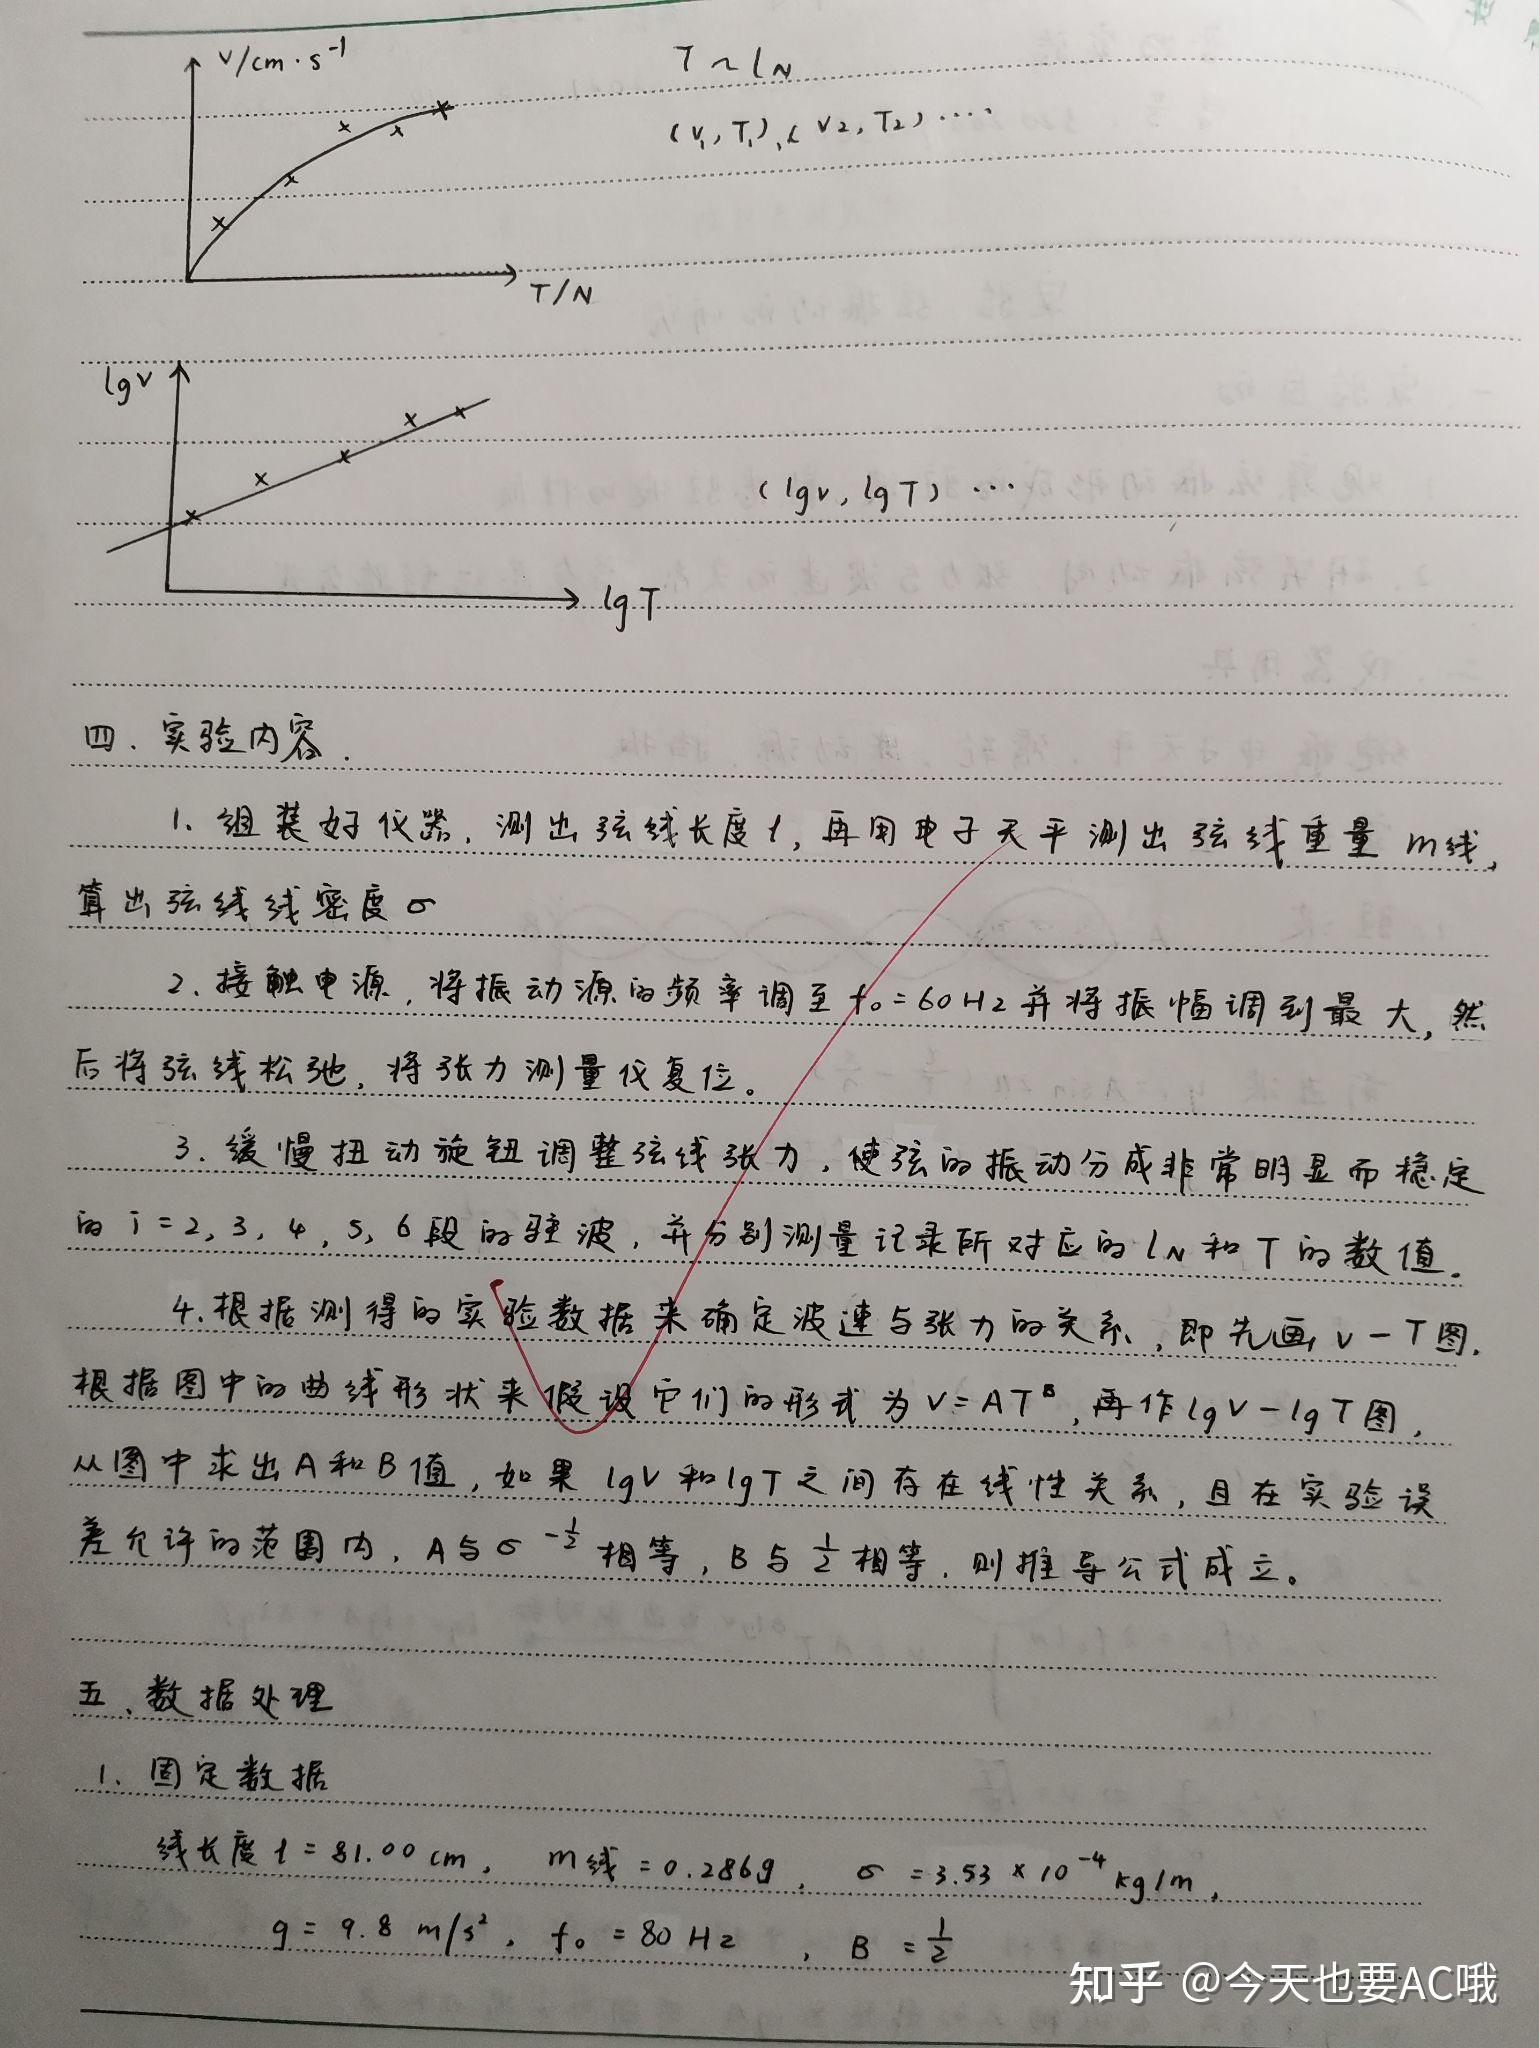 v/cm·s⁻¹
T ~ l_N
(v₁, T₁), (v₂, T₂) ····
T/N
lgv
(lgv, lgT) ···
lgT
四、实验内容.
1. 组装好仪器，测出弦线长度l，再用电子天平测出弦线重量m线，
算出弦线线密度σ
2. 接触电源，将振动源的频率调至f₀=60Hz并将振幅调到最大，然
后将弦线松弛，将张力测量仪复位。
3. 缓慢扭动旋钮调整弦线张力，使弦的振动分成非常明显而稳定
的i=2, 3, 4, 5, 6段的驻波，并分别测量记录所对应的l_N和T的数值。
4. 根据测得的实验数据来确定波速与张力的关系，即先画v-T图，
根据图中的曲线形状来假设它们的形式为V=AT^B，再作lgV-lgT图，
从图中求出A和B值，如果lgV和lgT之间存在线性关系，且在实验误
差允许的范围内，A与σ^(-1/2)相等，B与1/2相等，则推导公式成立。
五、数据处理
1. 固定数据
线长度l=81.00cm， m线=0.286g， σ=3.53×10⁻⁴kg/m，
g=9.8 m/s²， f₀=80Hz ， B=1/2
知乎 @今天也要AC哦